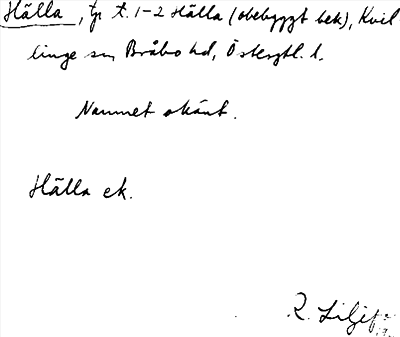 Hälla, tp t. 1-2 Hälla (obebyggt bek), Kvil
linge sn Bråbo hd, Östergtl. l.
Namnet okänt.
Hälla ek.
R. Liljef